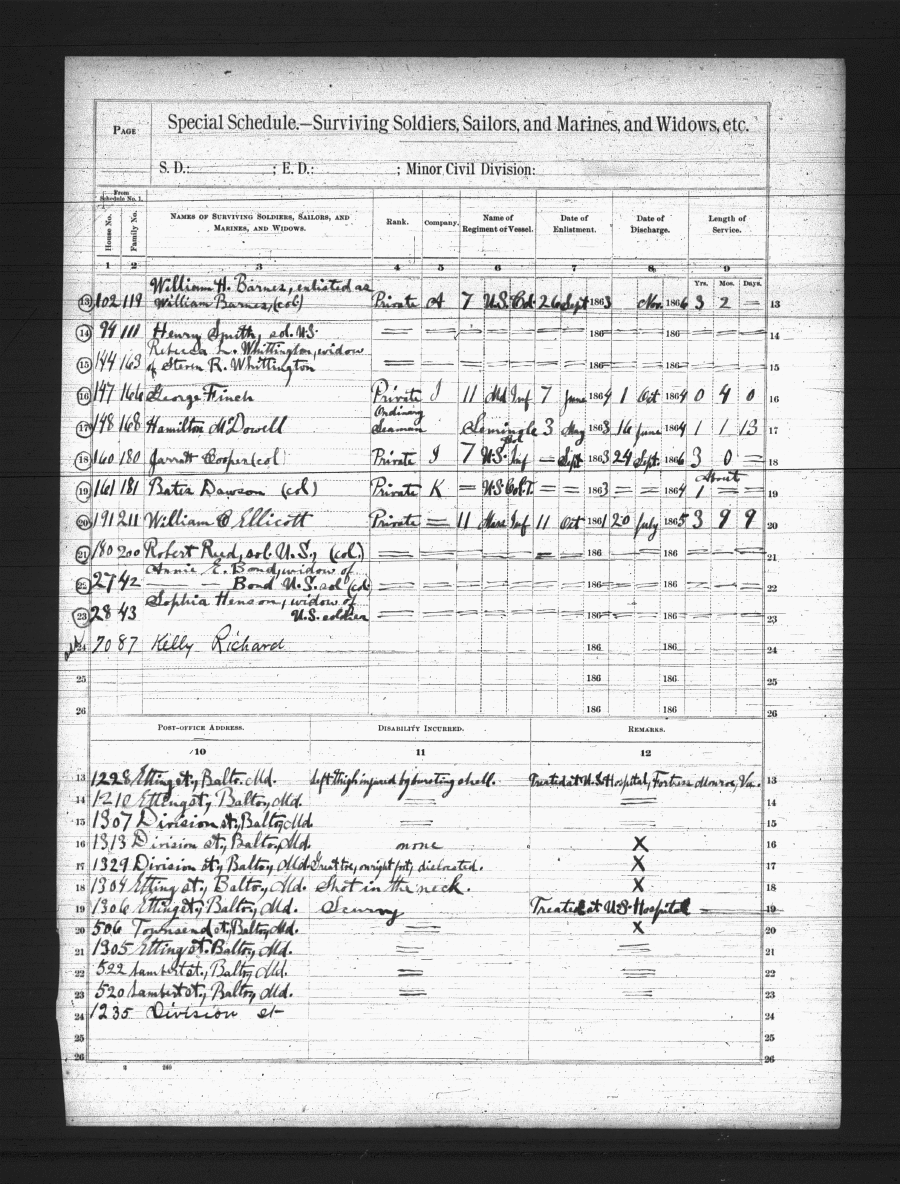 PAGE
Special Schedule.—Surviving Soldiers, Sailors, and Marines, and Widows, etc.
S. D.: ; E. D.: ; Minor Civil Division:
From Schedule No. 1.
House No. Family No. NAMES OF SURVIVING SOLDIERS, SAILORS, AND MARINES, AND WIDOWS. Rank. Company. Name of Regiment or Vessel. Date of Enlistment. Date of Discharge. Length of Service.
1 2 3 4 5 6 7 8 9
Yrs. Mos. Days.
William H. Barnes, enlisted as
13 102 119 William Barnes, (col) Private A 7 U.S. Col. 26 Sept 1863 Nov. 1866 3 2 — 13
14 94 111 Henry Smith, sol. U.S. == 186 186 14
Rebecca L. Whittington, widow
15 144 163 of Steven R. Whittington == 186 186 15
16 147 166 George Finch Private I 11 Md Inf 7 June 1864 1 Oct 1864 0 4 0 16
Ordinary
17 148 168 Hamilton McDowell Seaman Seminole 3 May 1863 16 June 1864 1 1 13 17
Col
18 160 180 Jarratt Cooper (col) Private I 7 U.S. Inf — Sept 1863 24 Sept. 1866 3 0 — 18
About
19 161 181 Bates Dawson (col) Private K = U.S. Col. T. = = 1863 = = 1864 1 = = 19
20 191 211 William C Ellicott Private = 11 Mass Inf 11 Oct 1861 20 July 1865 3 9 9 20
21 180 200 Robert Reed, sol. U.S., (col.) == 186 186 21
Annie E. Bond, widow of
22 27 42 — — Bond U.S. sol (col == 186 186 22
Sophia Henson, widow of
23 28 43 U.S. soldier == 186 186 23
24 70 87 Kelly Richard 186 186 24
25 186 186 25
26 186 186 26
POST-OFFICE ADDRESS. DISABILITY INCURRED. REMARKS.
10 11 12
13 1228 Etting st, Balto. Md. Left thigh injured by bursting shell. Treated at U.S. Hospital, Fortress Monroe, Va. 13
14 1210 Etting st, Balto, Md. == == 14
15 1307 Division st, Balto, Md == == 15
16 1313 Division st, Balto, Md. none X 16
17 1329 Division st, Balto, Md. Great toe, on right foot, dislocated. X 17
18 1304 Etting st, Balto, Md. Shot in the neck. X 18
19 1306 Etting st, Balto, Md. Scurvy Treated at U.S. Hospital — 19
20 506 Townsend st, Balto, Md. == X 20
21 1305 Etting st. Balto, Md. == == 21
22 522 Lambert st, Balto, Md. == == 22
23 520 Lambert st, Balto, Md. == == 23
24 1235 Division st 24
25 25
26 26